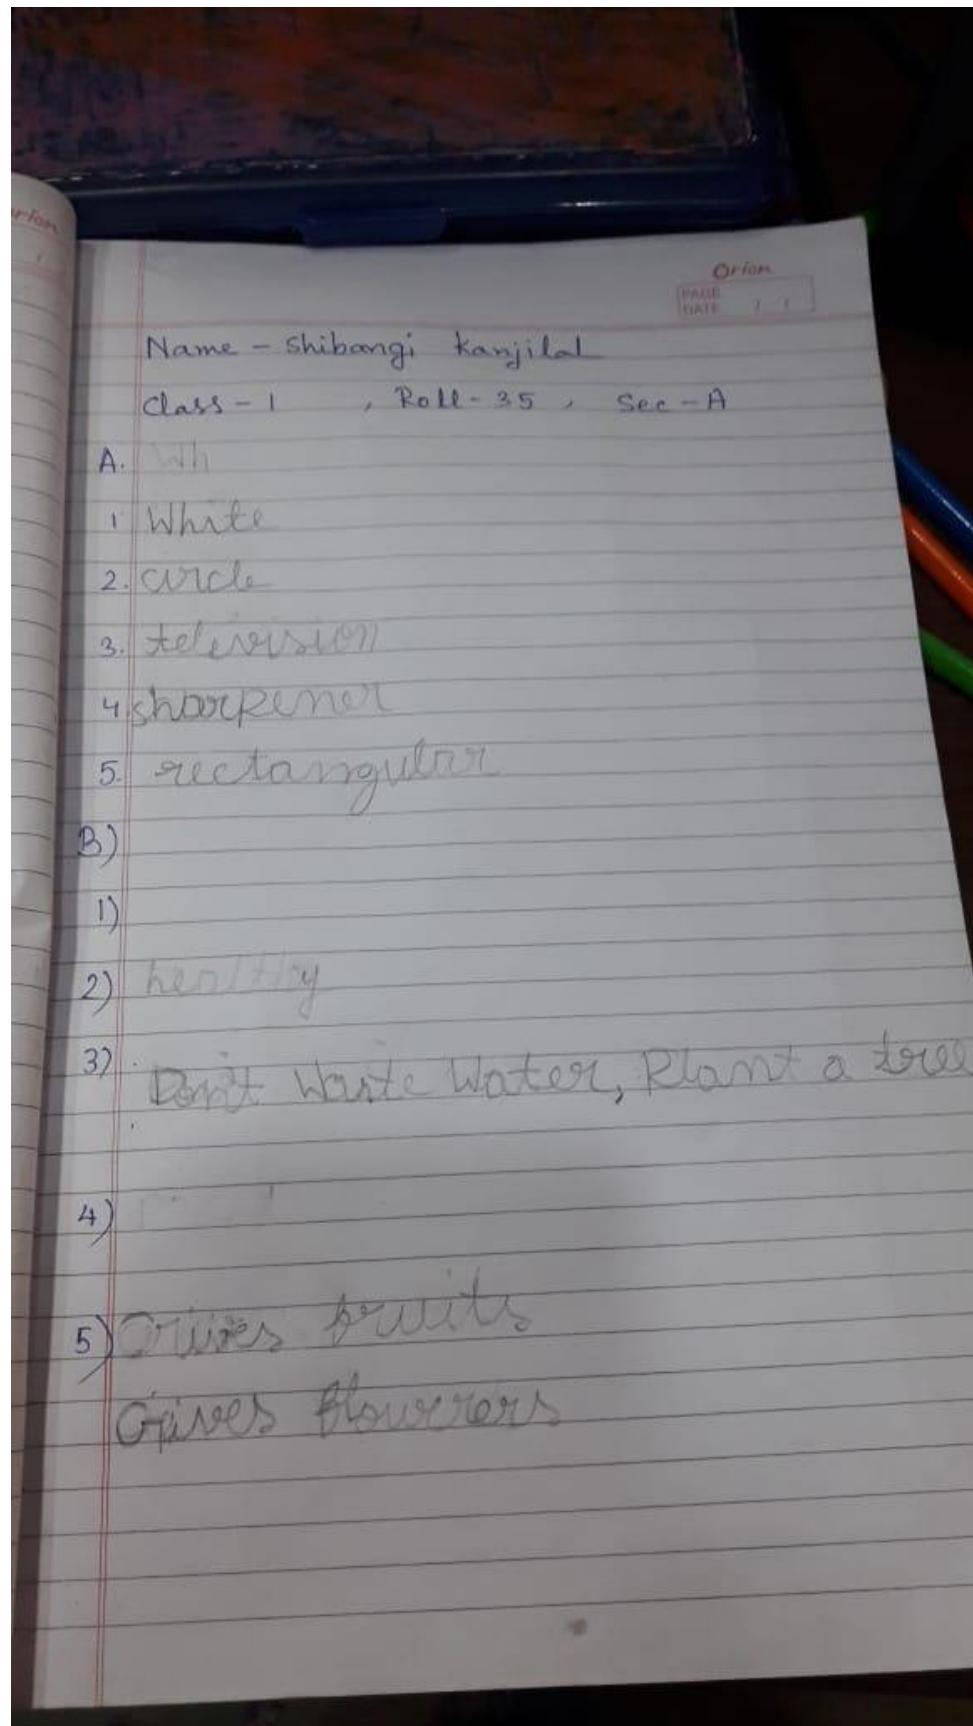 Orion
PAGE
DATE / /
Name - Shibangi Kanjilal
Class - 1 , Roll - 35 , Sec - A
A. Wh
1 White
2. circle
3. television
4. sharpener
5. rectangular
B)
1)
2) healthy
3) Don't Waste Water, Plant a tree
4)
5) Gives fruits
Gives flowerers